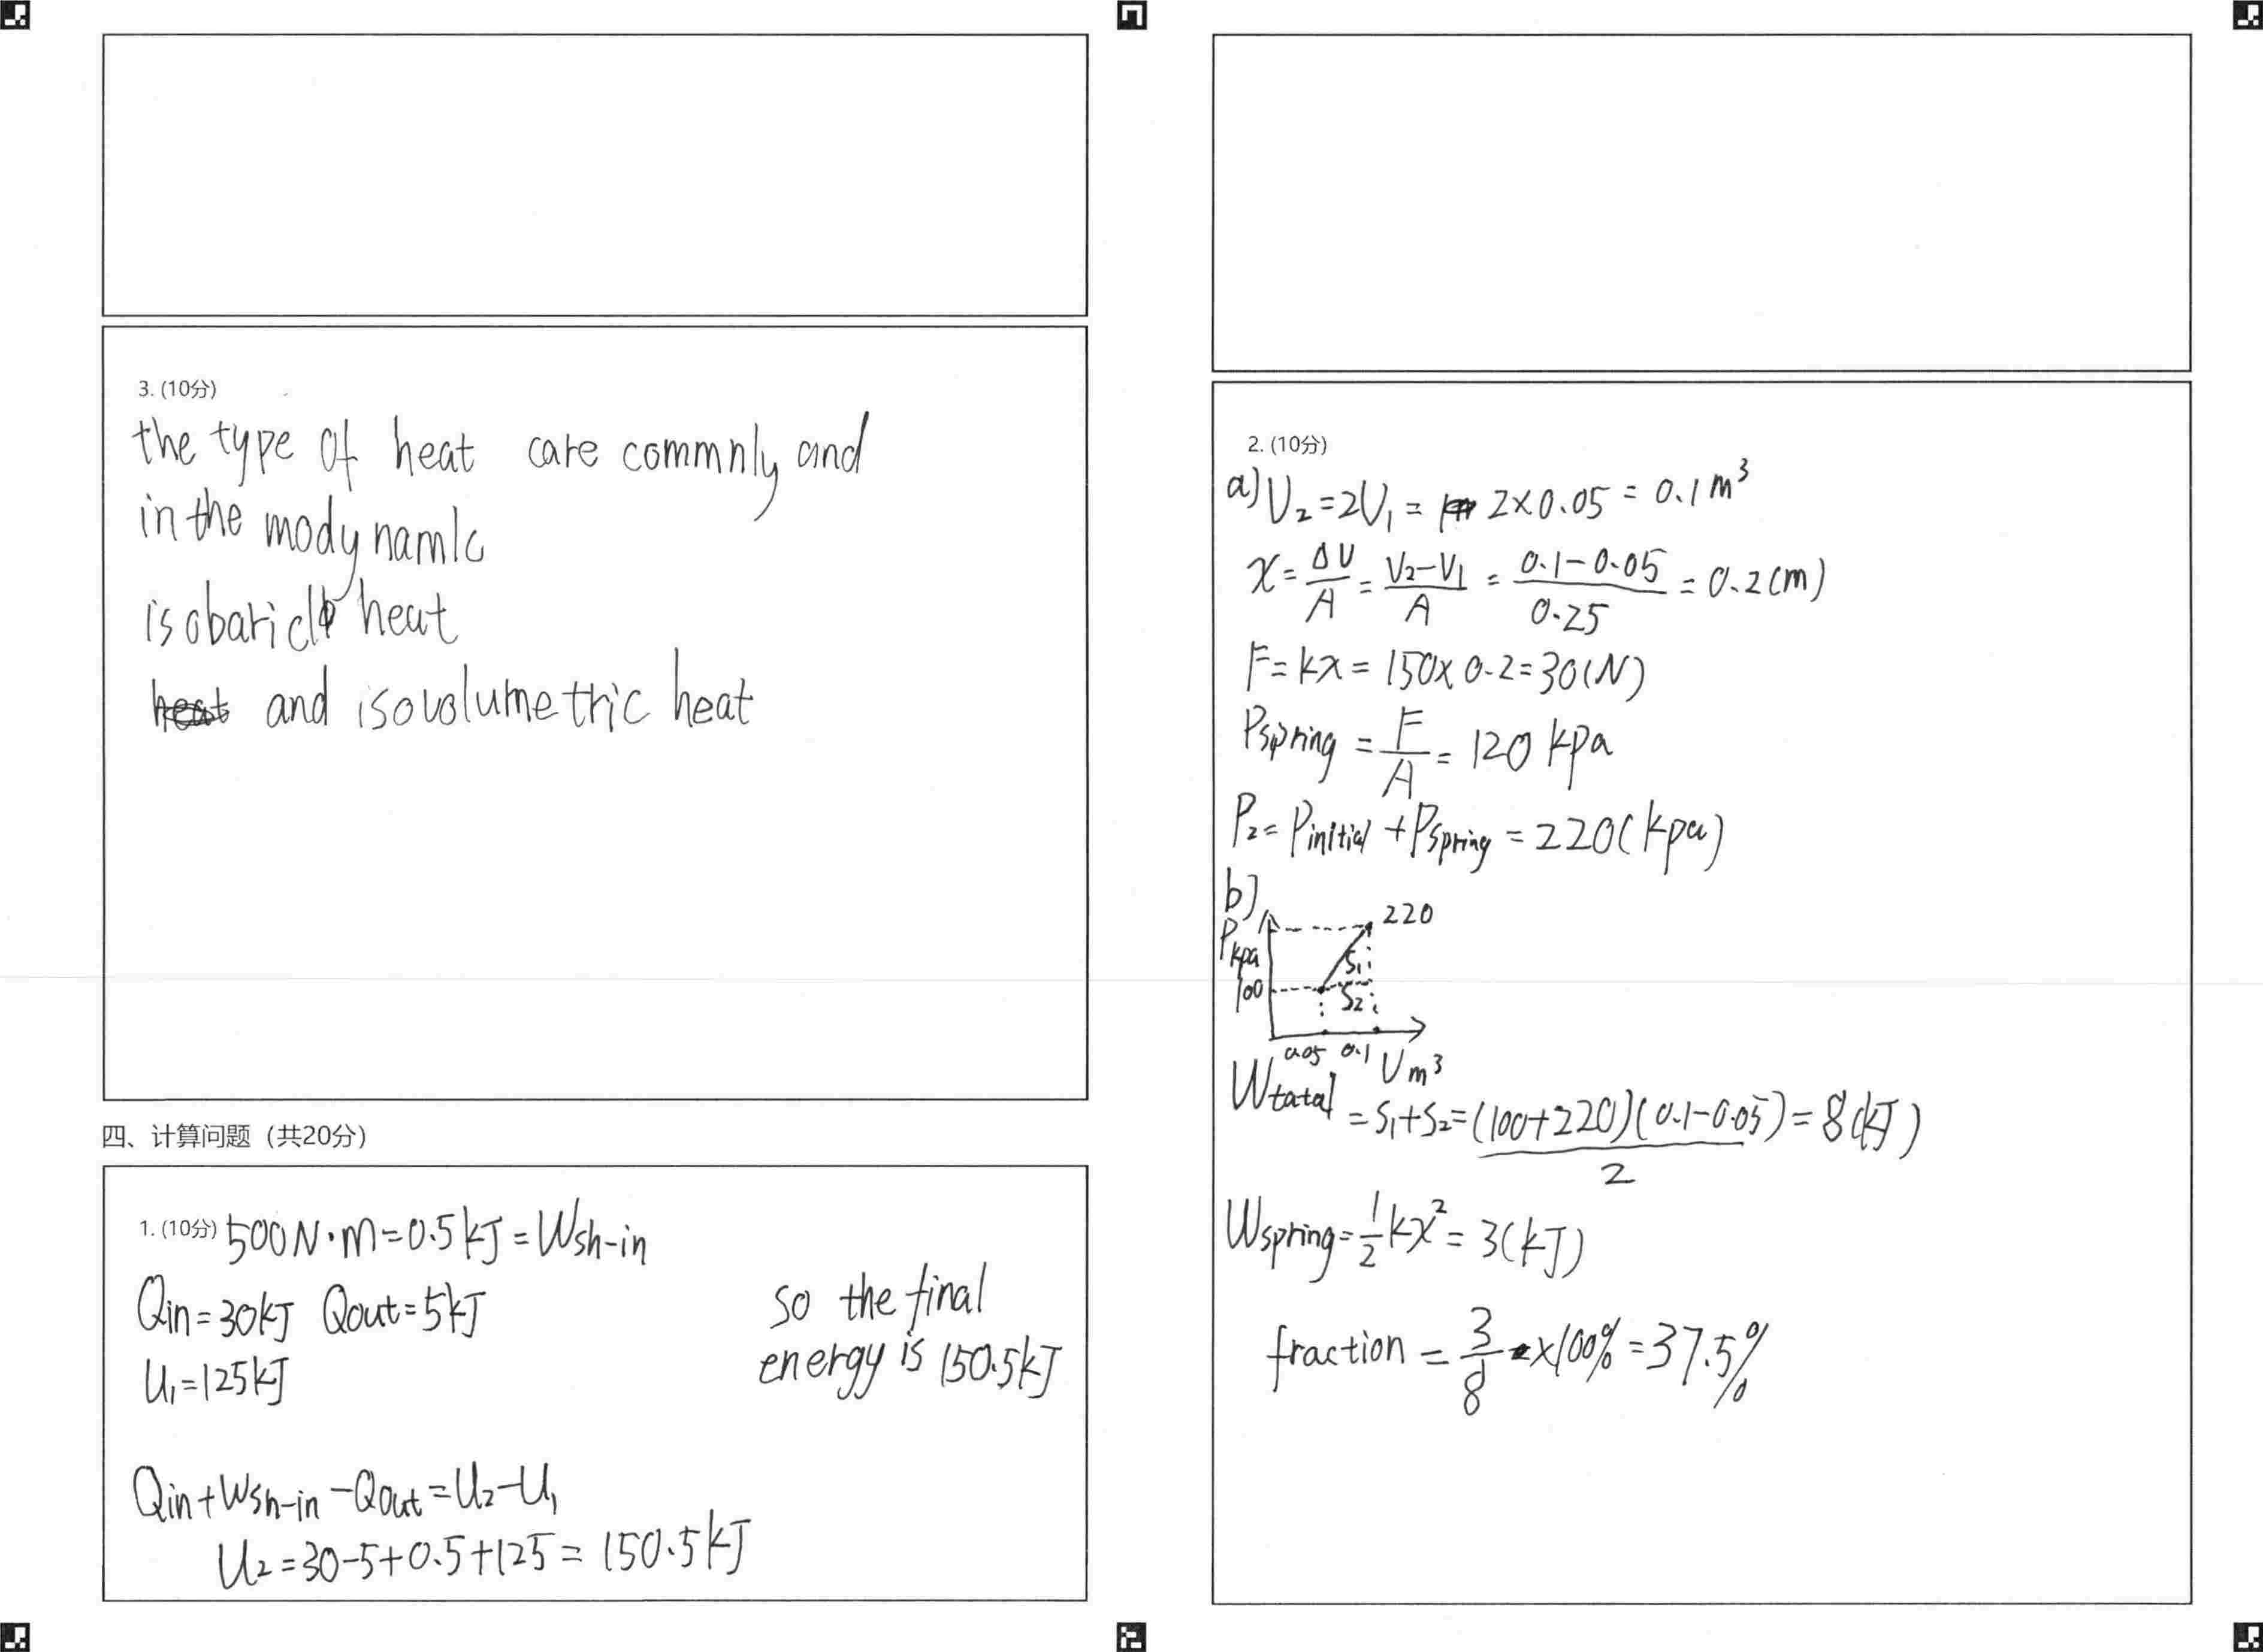 3. (10分)
the type of heat care commnly and
in the mody namic
isobaric heat
and isovolumetric heat
四、计算问题（共20分）
1. (10分) 500N·m=0.5kJ=Wsh-in
Qin=30kJ Qout=5kJ
U₁=125kJ
so the final
energy is 150.5kJ
Qin+Wsh-in-Qout=U₂-U₁
U₂=30-5+0.5+125=150.5kJ
2. (10分)
a) V₂=2V₁= 2×0.05=0.1m³
x=ΔV/A=(V₂-V₁)/A=(0.1-0.05)/0.25=0.2(m)
F=kx=150×0.2=30(N)
Pspring=F/A=120kpa
P₂=Pinitial+Pspring=220(kpa)
b)
P
kpa
220
100
S₁
S₂
0.05 0.1 Vm³
Wtatal=S₁+S₂=(100+220)(0.1-0.05)/2=8(kJ)
Wspring=1/2kx²=3(kJ)
fraction=3/8×100%=37.5%